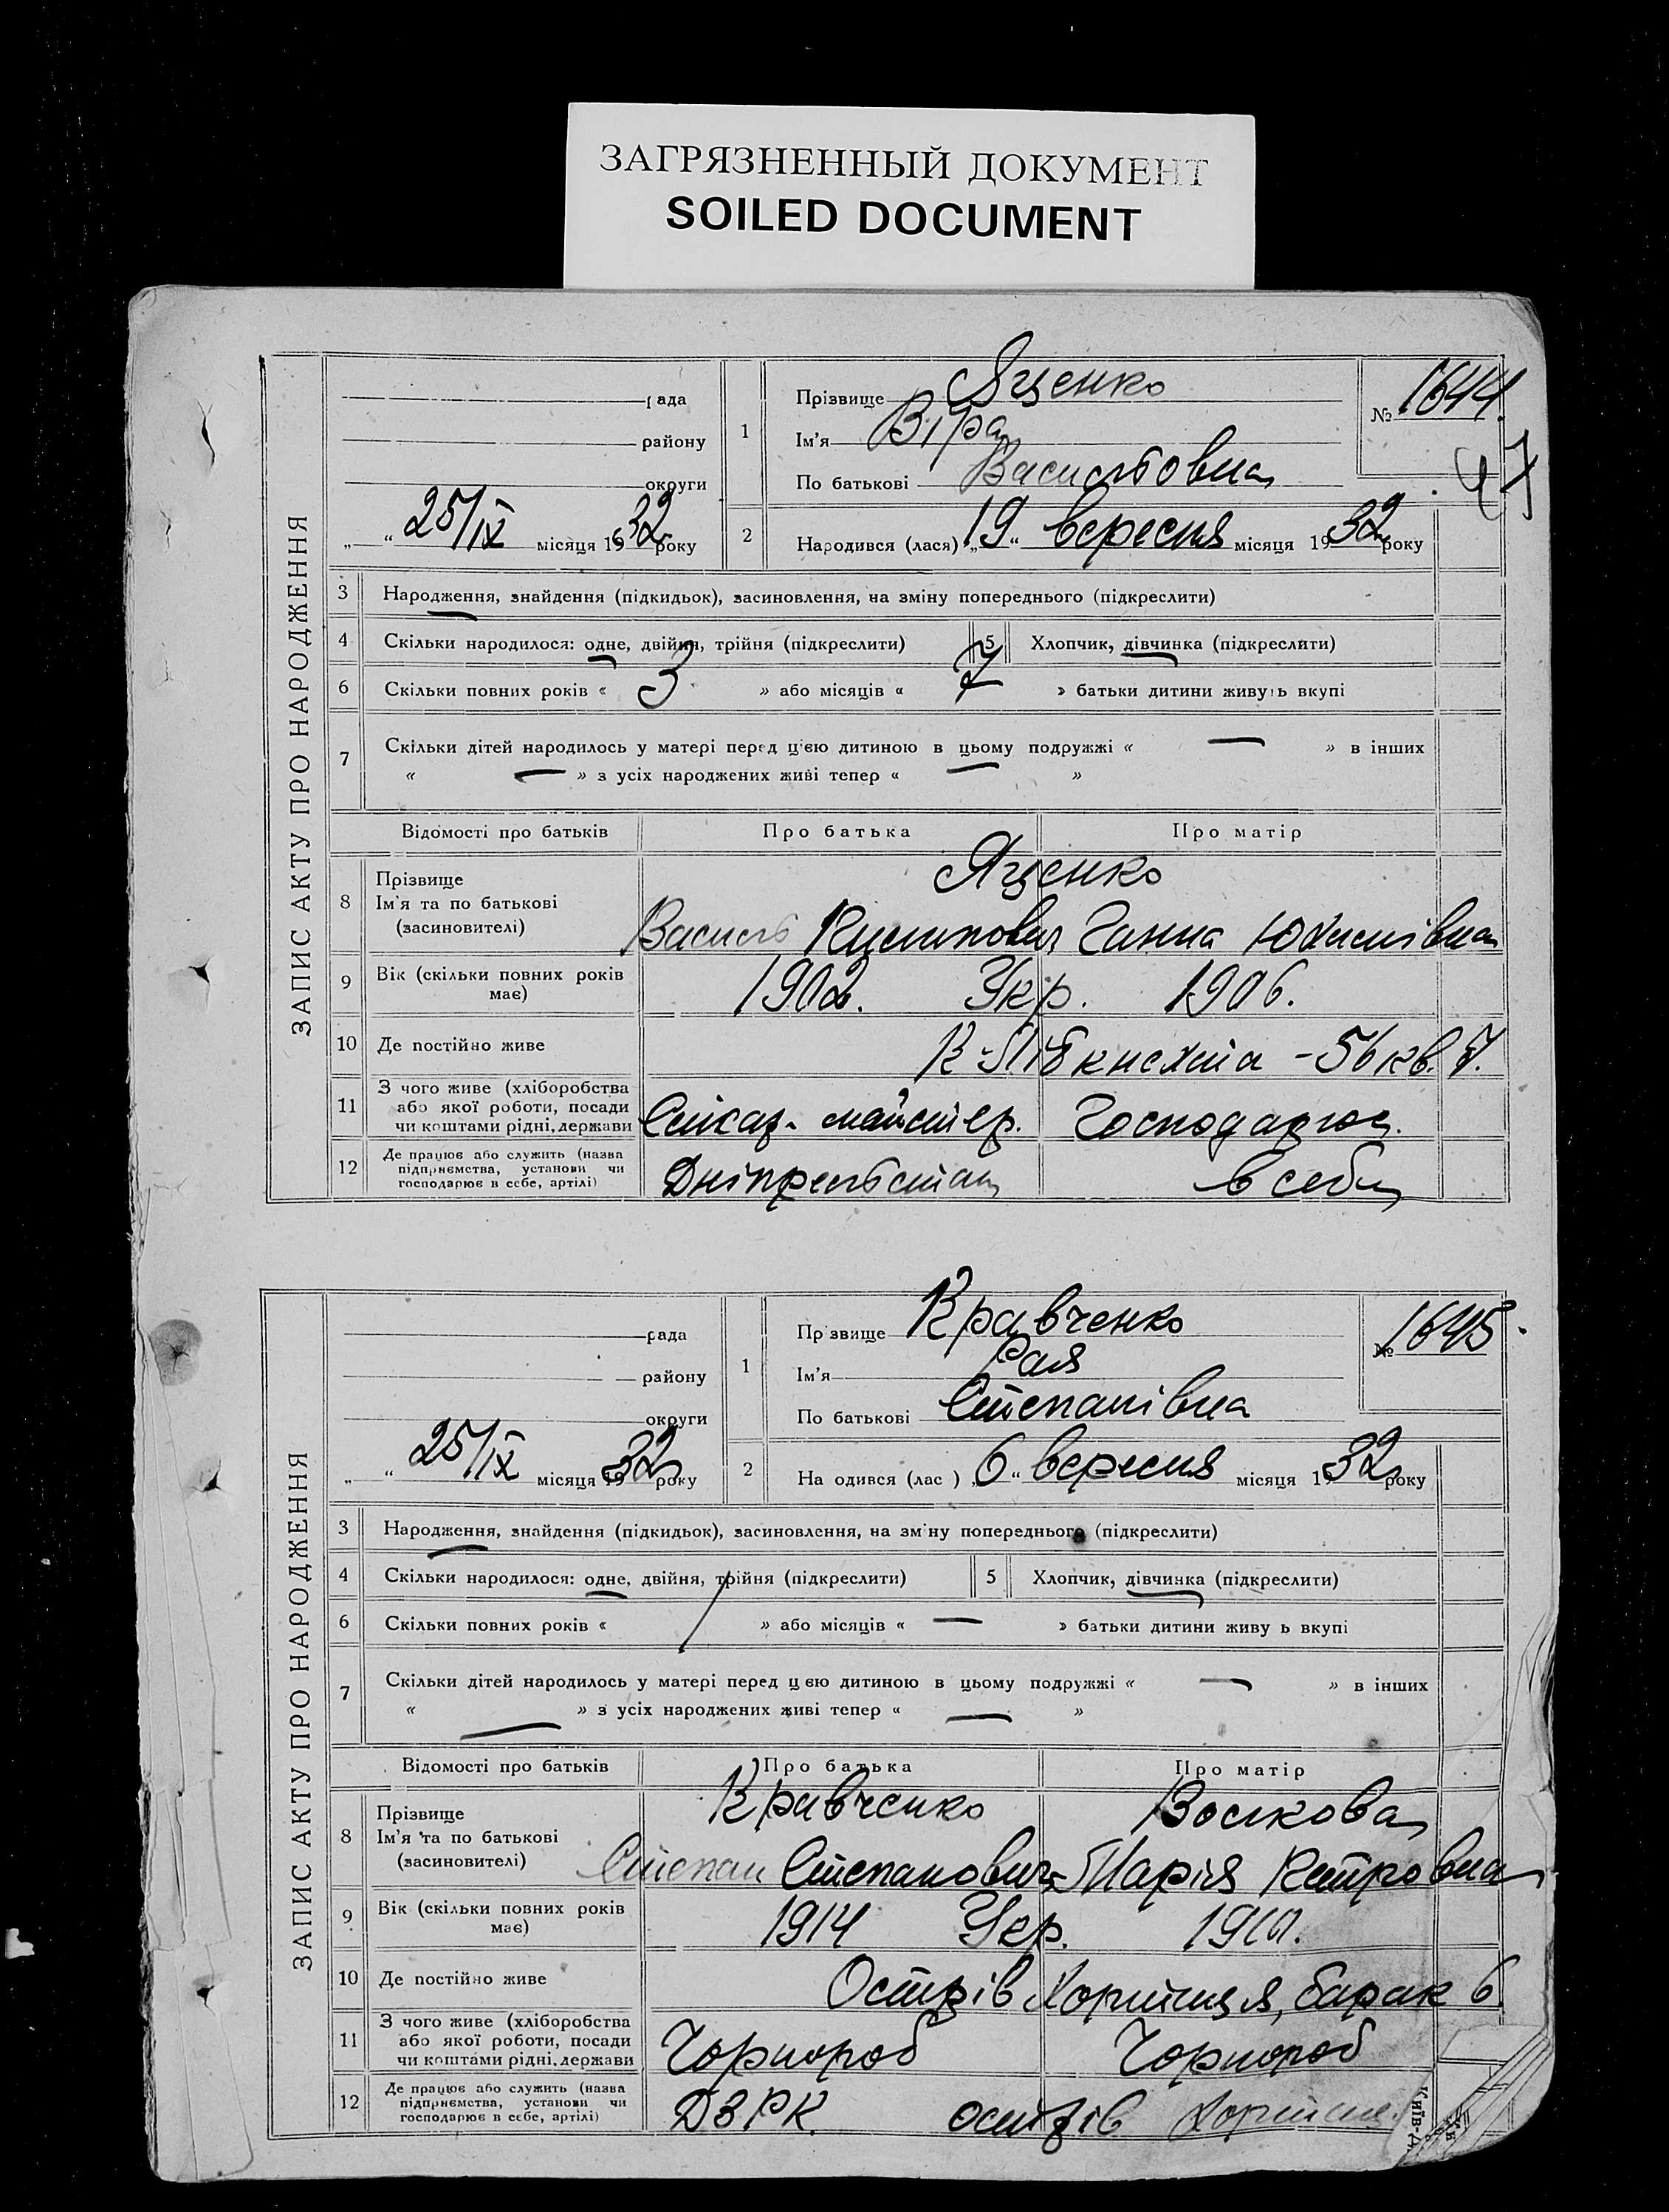 ЗАГРЯЗНЕННЫЙ ДОКУМЕНТ
SOILED DOCUMENT
ЗАПИС АКТУ ПРО НАРОДЖЕННЯ
рада
району
округи
„ “ 25/IX місяця 1932 року
1
Прізвище Яценко
Ім'я Віра
По батькові Васильовна
№ 1644.
47
2
Народився (лася) „19“ вересня місяця 1932 року
3 Народження, знайдення (підкидьок), засиновлення, на зміну попереднього (підкреслити)
4 Скільки народилося: одне, двійня, трійня (підкреслити) 5 Хлопчик, дівчинка (підкреслити)
6 Скільки повних років « 3 » або місяців « 7 » батьки дитини живуть вкупі
7 Скільки дітей народилось у матері перед цією дитиною в цьому подружжі « — » в інших
« — » з усіх народжених живі тепер « — »
Відомості про батьків Про батька Про матір
8 Прізвище
Ім'я та по батькові
(засновителі)
Яценко
Василь Ганна Юхимівна
9 Вік (скільки повних років
має)
1902. Укр. 1906.
10 Де постійно живе
56 кв. 7.
11 З чого живе (хліборобства
або якої роботи, посади
чи коштами рідні, держави
майстер. Господарює.
12 Де працює або служить (назва
підприємства, установи чи
господарює в себе, артілі)
Дніпрельстан в себе
ЗАПИС АКТУ ПРО НАРОДЖЕННЯ
рада
району
округи
„ “ 25/IX місяця 1932 року
1
Прізвище Кравченко
Ім'я Рая
По батькові Степанівна
№ 1645.
2
На одився (лас ) „6“ вересня місяця 1932 року
3 Народження, знайдення (підкидьок), засиновлення, на зміну попереднього (підкреслити)
4 Скільки народилося: одне, двійня, трійня (підкреслити) 5 Хлопчик, дівчинка (підкреслити)
6 Скільки повних років « / » або місяців « — » батьки дитини живу ь вкупі
7 Скільки дітей народилось у матері перед цією дитиною в цьому подружжі « — » в інших
« — » з усіх народжених живі тепер « — »
Відомості про батьків Про батька Про матір
8 Прізвище
Ім'я та по батькові
(засиновителі)
Кравченко
Степан Степанович Марія Петровна
9 Вік (скільки повних років
має)
1914 Укр.
10 Де постійно живе
Острів Хортиця, барак 6.
11 З чого живе (хліборобства
або якої роботи, посади
чи коштами рідні, держави
Чорнороб Чорнороб
12 Де працює або служить (назва
підприємства, установи чи
господарює в себе, артілі)
ДЗРК. острів Хортиця.